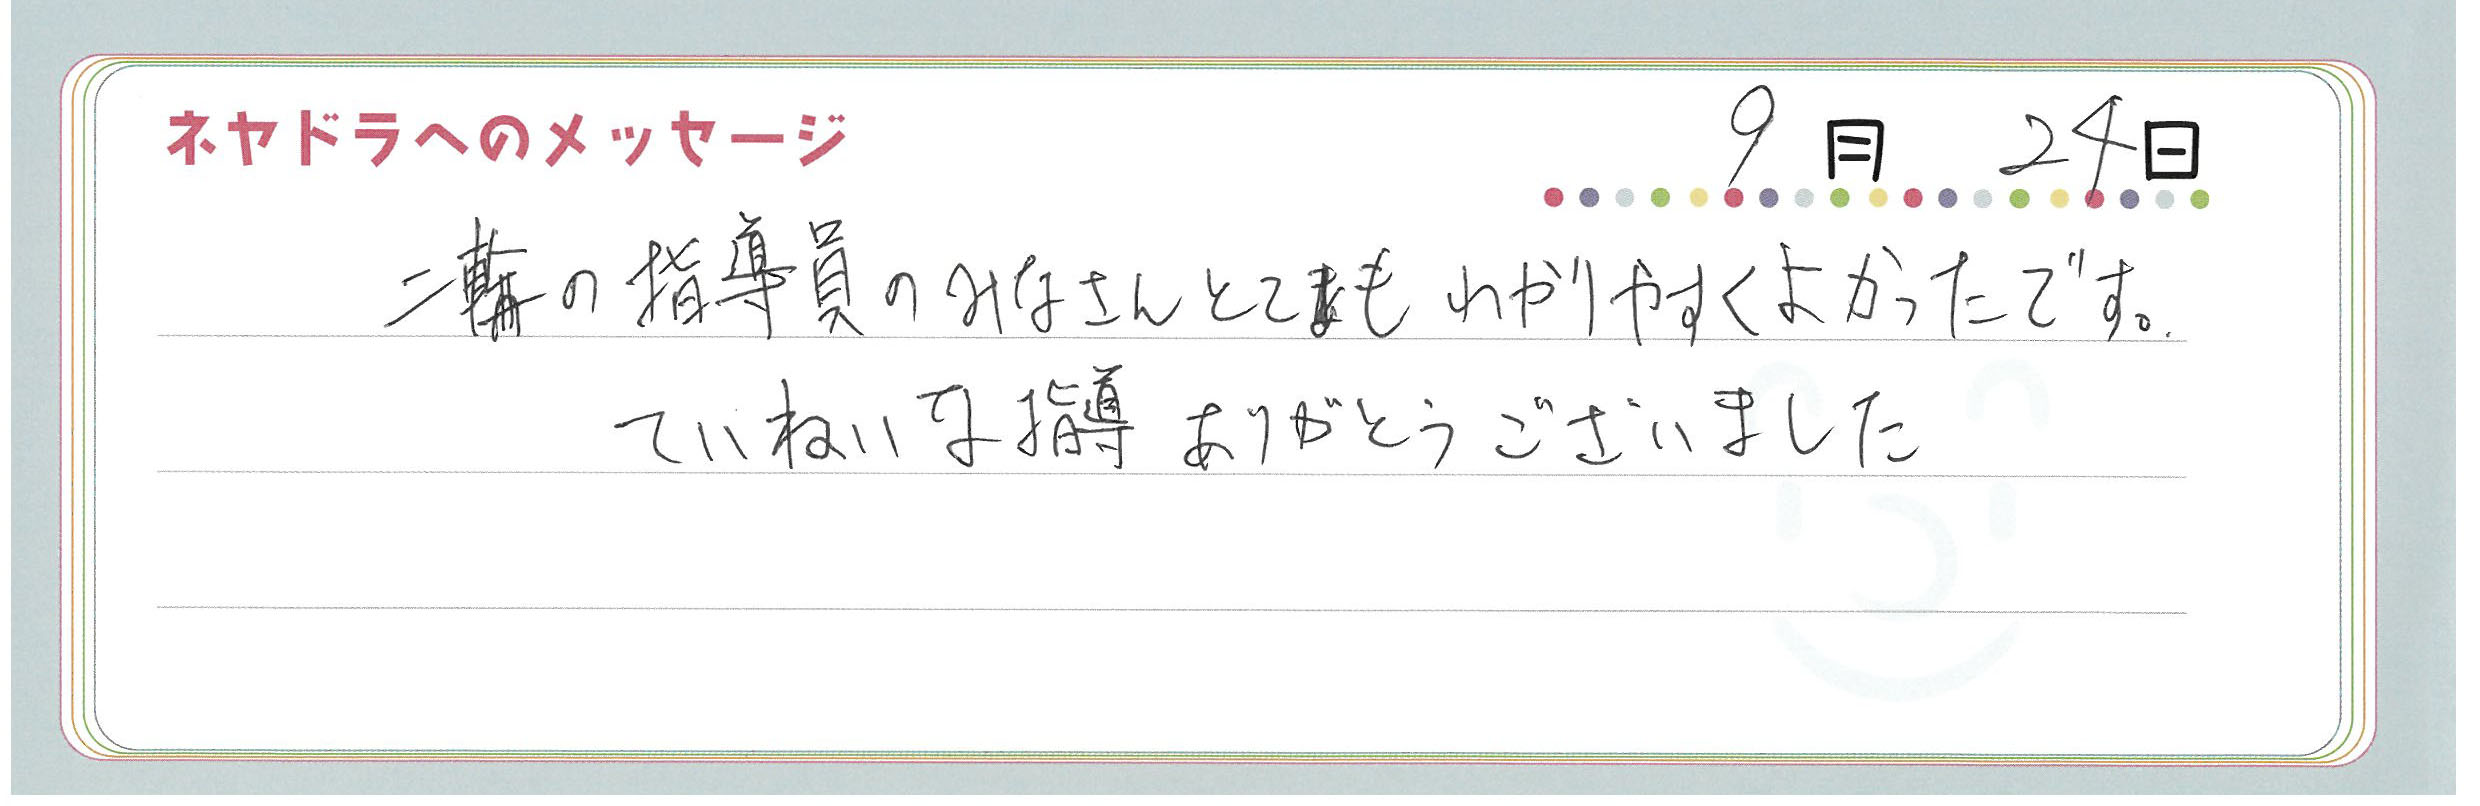 ネヤドラへのメッセージ
9月 24日
二輪の指導員のみなさんとてもわかりやすくよかったです。
ていねいな指導ありがとうございました